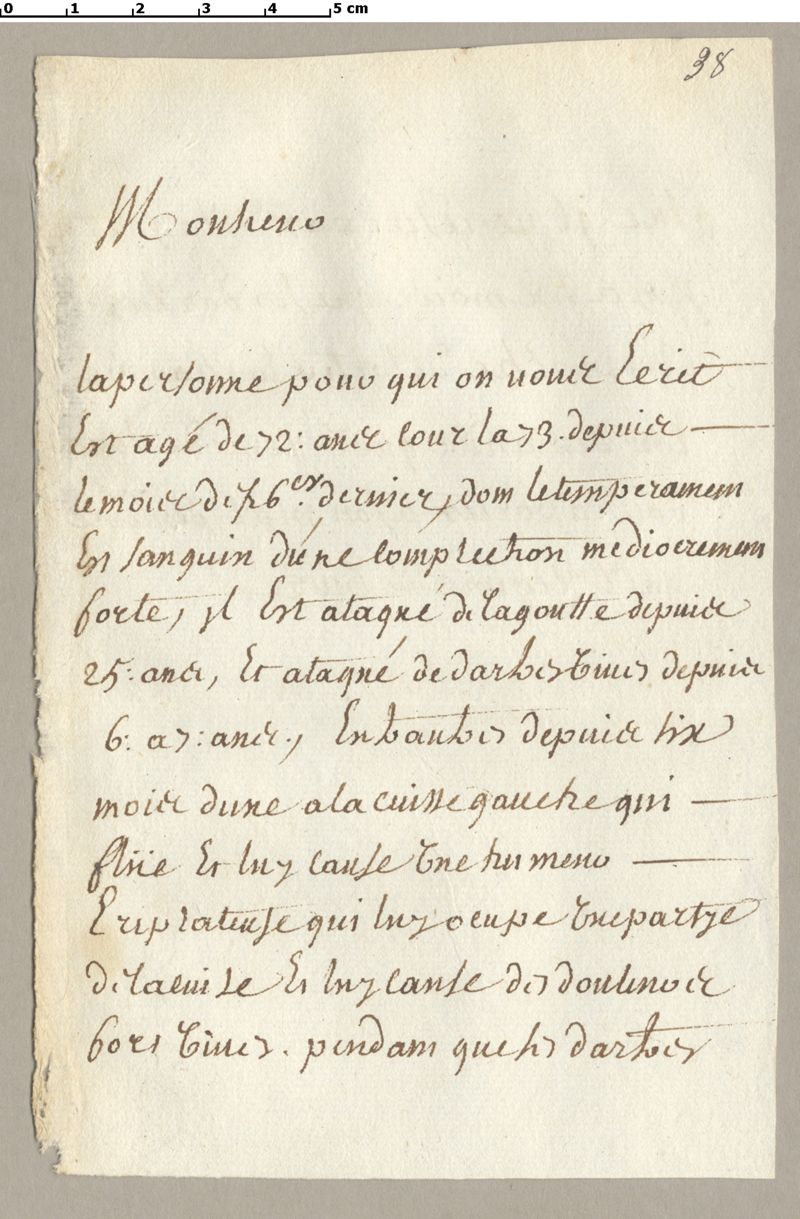 0 1 2 3 4 5 cm
38
Monsieur
la personne pour qui on vous Ecrit
Est agé de 72: ans cour la 73. depuis
le mois de fr dernier, dont le temperament
Est sanguin d'une complection mediocrement
forte, jl Est ataqué de la goutte depuis
25: ans, Et ataqué de dartres vives depuis
6: a 7: ans, En
depuis six
mois dune a la cuisse gauche qui
flüe Et luy cause une humeur
Erisplateuse qui luy ocupe une partye
de la cuisse Et luy cause des douleurs
fors vives. pendant que les dartres